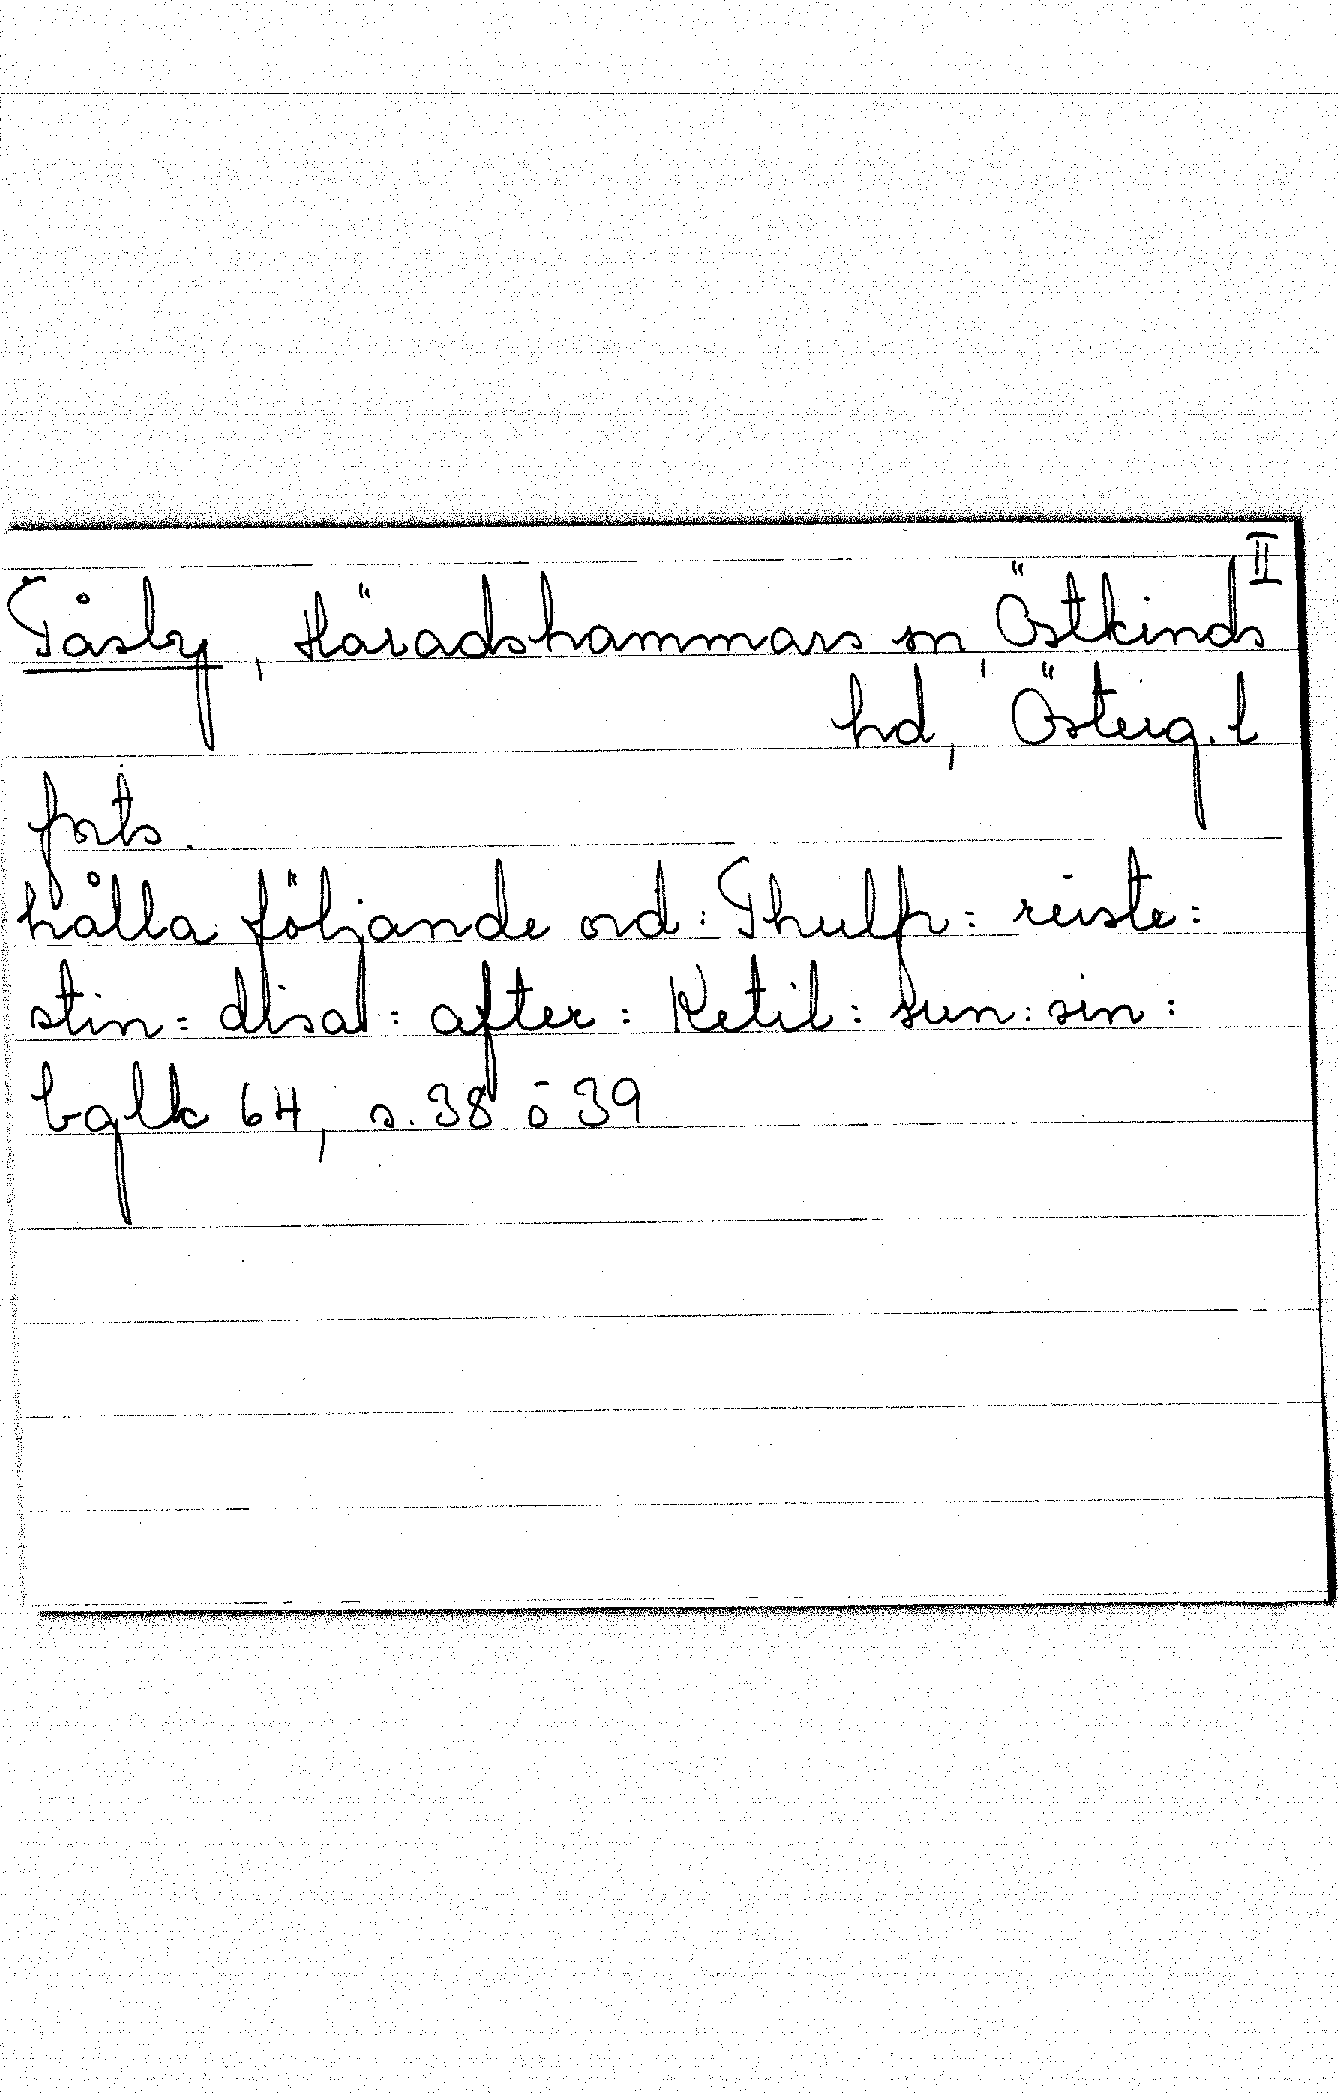 II
Tåsby, Häradshammars sn, Östkinds
hd, Österg. l
forts.
hålla följande ord: Thulfr: reiste:
stin: dlsat: after: Ketil: sun: sin:
bglk 64, s. 38 o 39